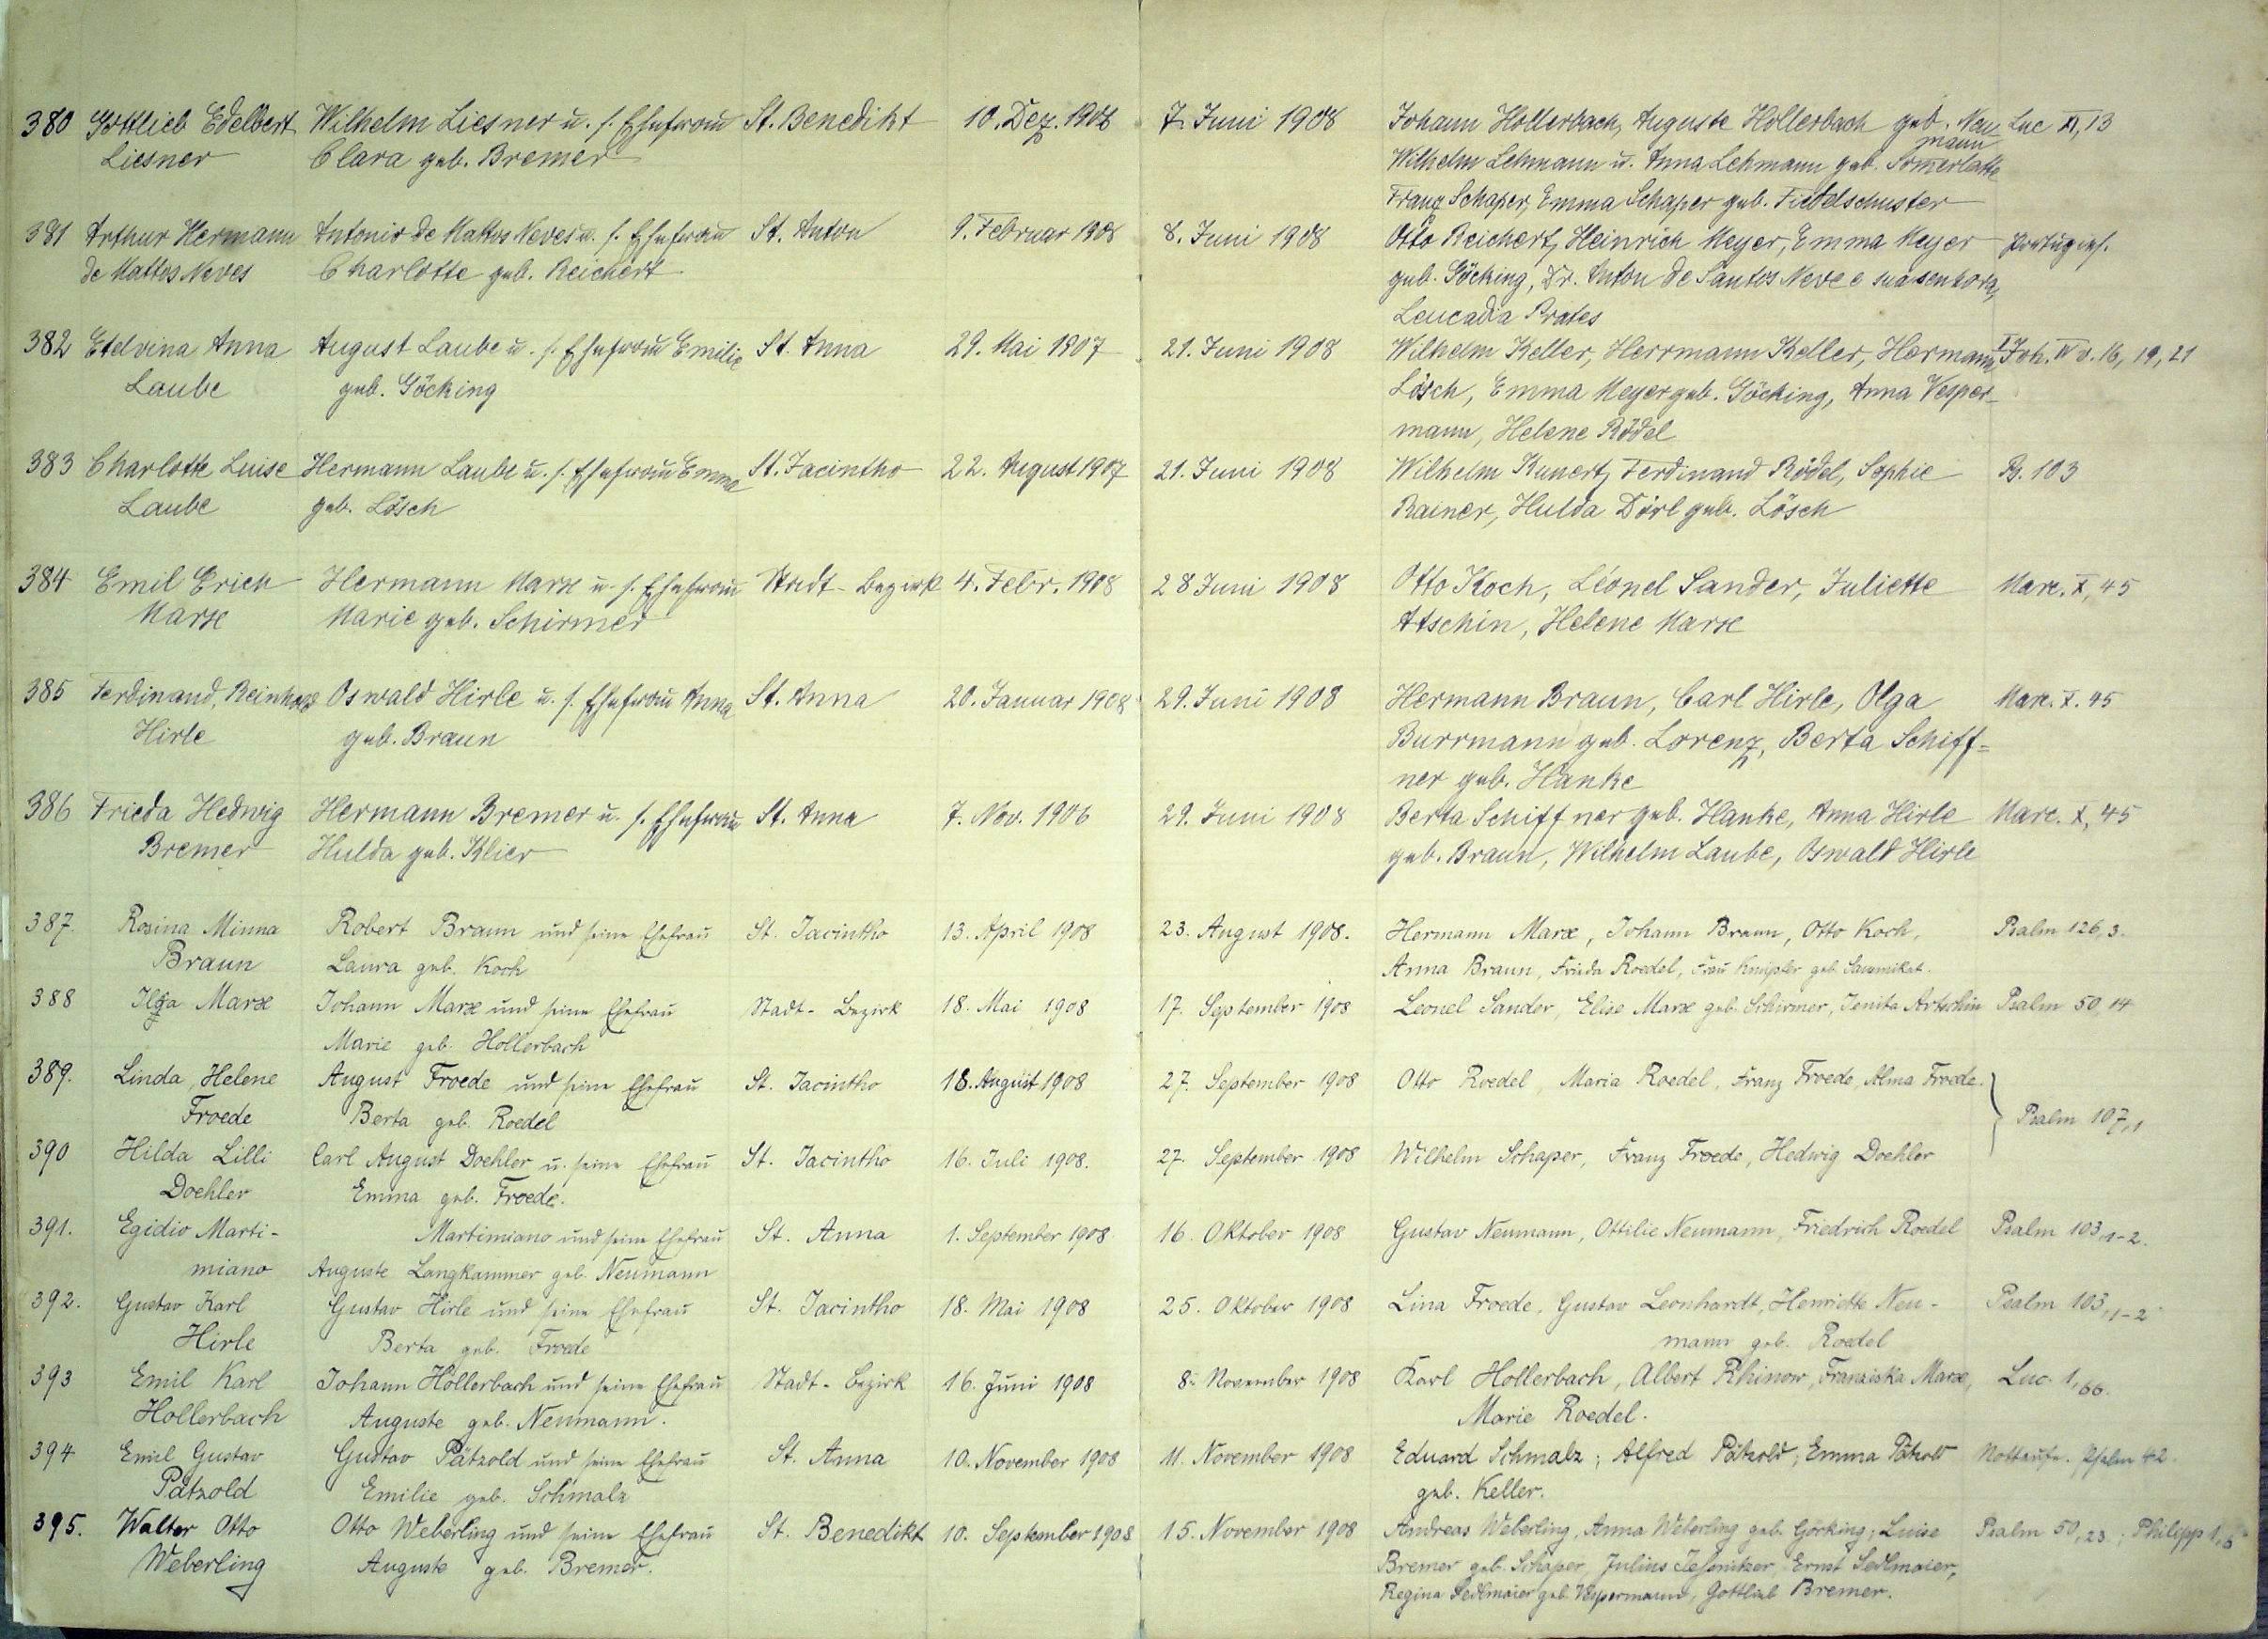 380 Gottlieb Edelbert Wilhelm Liesner u. s. Ehefrau St. Benedikt 10. Dez. 1908 7. Juni 1908 Johann Hollerbach, Auguste Hollerbach geb. Neu- Luc XI, 13
mann
Liesner Clara geb. Bremer Wilhelm Lehmann u. Anna Lehmann geb. Som̄erlatte
Franz Schaper, Emma Schaper geb. Fiebelschuster
381 Arthur Hermann Antonio de Mattos Neves u. s. Ehefrau St. Anton 9. Februar 1908 8. Juni 1908 Otto Reichert, Heinrich Meyer, Emma Meyer portugies.
de Mattos Neves Charlotte geb. Reichert geb. Göcking, Dr. Anton de Santos Neve e sua senhora,
Leucadia Prates
382 Etelvina Anna August Laube u. s. Ehefrau Emilie St. Anna 29. Mai 1907 21. Juni 1908 Wilhelm Keller, Herrmann Keller, Hermann I Joh. IV v. 16, 19, 21
Laube geb. Göcking Lösch, Emma Meyer geb. Göcking, Anna Vesper-
mann, Helene Rödel
383 Charlotte Luise Hermann Laube u. s. Ehefrau Emma St. Jacintho 22. August 1907 21. Juni 1908 Wilhelm Kunert, Ferdinand Rödel, Sophie Ps. 103
Laube geb. Lösch Rainer, Hulda Dörl geb. Lösch
384 Emil Erich Hermann Marx u. s. Ehefrau Stadt-Bezirk 4. Febr. 1908 28 Juni 1908 Otto Koch, Léonel Sander, Juliette Marc. X, 45
Marx Marie geb. Schirmer Atschin, Helene Marx
385 Ferdinand, Reinhold Oswald Hirle u. s. Ehefrau Anna St. Anna 20. Januar 1908 29. Juni 1908 Hermann Braun, Carl Hirle, Olga Marc. X. 45
Hirle geb. Braun Burrmann geb. Lorenz, Berta Schiff=
ner geb. Hanke
386 Frieda Hedwig Hermann Bremer u. s. Ehefrau St. Anna 7. Nov. 1906 29. Juni 1908 Berta Schiffner geb. Hanke, Anna Hirle Marc. X, 45
Bremer Hulda geb. Klier geb. Braun, Wilhelm Laube, Oswald Hirle
387. Rosina Minna Robert Braun und seine Ehefrau St. Jacintho 13. April 1908 23. August 1908. Hermann Marx, Johann Braun, Otto Koch, Psalm 126, 3.
Braun Laura geb. Koch Anna Braun, Frieda Roedel, Frau Knipfer geb.
388 Johann Marx und seine Ehefrau Stadt-Bezirk 18. Mai 1908 17. September 1908 Leonel Sander, Elise Marx geb. Schirmer, Jenita Artschin Psalm 50, 14
Marx Marie geb. Hollerbach
389. Linda, Helene August Froede und seine Ehefrau St. Jacintho 18. August 1908 27. September 1908 Otto Roedel, Maria Roedel, Franz Froede, Alma Froede.
Froede Berta geb. Roedel Psalm 107, 1
390 Hilda Lilli Carl August Doehler u. seine Ehefrau St. Jacintho 16. Juli 1908. 27. September 1908 Wilhelm Schaper, Franz Froede, Hedwig Doehler
Doehler Emma geb. Froede.
391. Egidio Marti- Martimiano und seine Ehefrau St. Anna 1. September 1908 16. Oktober 1908 Gustav Neumann, Ottilie Neumann, Friedrich Roedel Psalm 103, 1-2.
miano Auguste Langkammer geb. Neumann
392. Gustav Karl Gustav Hirle und seine Ehefrau St. Jacintho 18. Mai 1908 25. Oktober 1908 Lina Froede, Gustav Leonhardt, Henriette Neu- Psalm 103, 1-2
Hirle Berta geb. Froede mann geb. Roedel
393 Emil Karl Johann Hollerbach und seine Ehefrau Stadt-Bezirk 16. Juni 1908 8. November 1908 Karl Hollerbach, Albert Rhinow, Franziska Marx, Luc. 1, 66.
Hollerbach Auguste geb. Neumann. Marie Roedel.
394 Emil Gustav Gustav Pätzold und seine Ehefrau St. Anna 10. November 1908 11. November 1908 Eduard Schmalz; Alfred Pätzold; Emma Pätzold Nottaufe. Psalm 42.
Pätzold Emilie geb. Schmalz geb. Keller.
395. Walter Otto Otto Weberling und seine Ehefrau St. Benedikt 10. September 1908 15. November 1908 Andreas Weberling, Anna Weberling geb. Göcking; Luise Psalm 50, 23.; Philipp 1, 6
Weberling Auguste geb. Bremer. Bremer geb. Schaper, Julius Jessnitzer, Ernst Sedlmaier,
Regina Sedlmaier geb. Vespermann, Gottlieb Bremer.